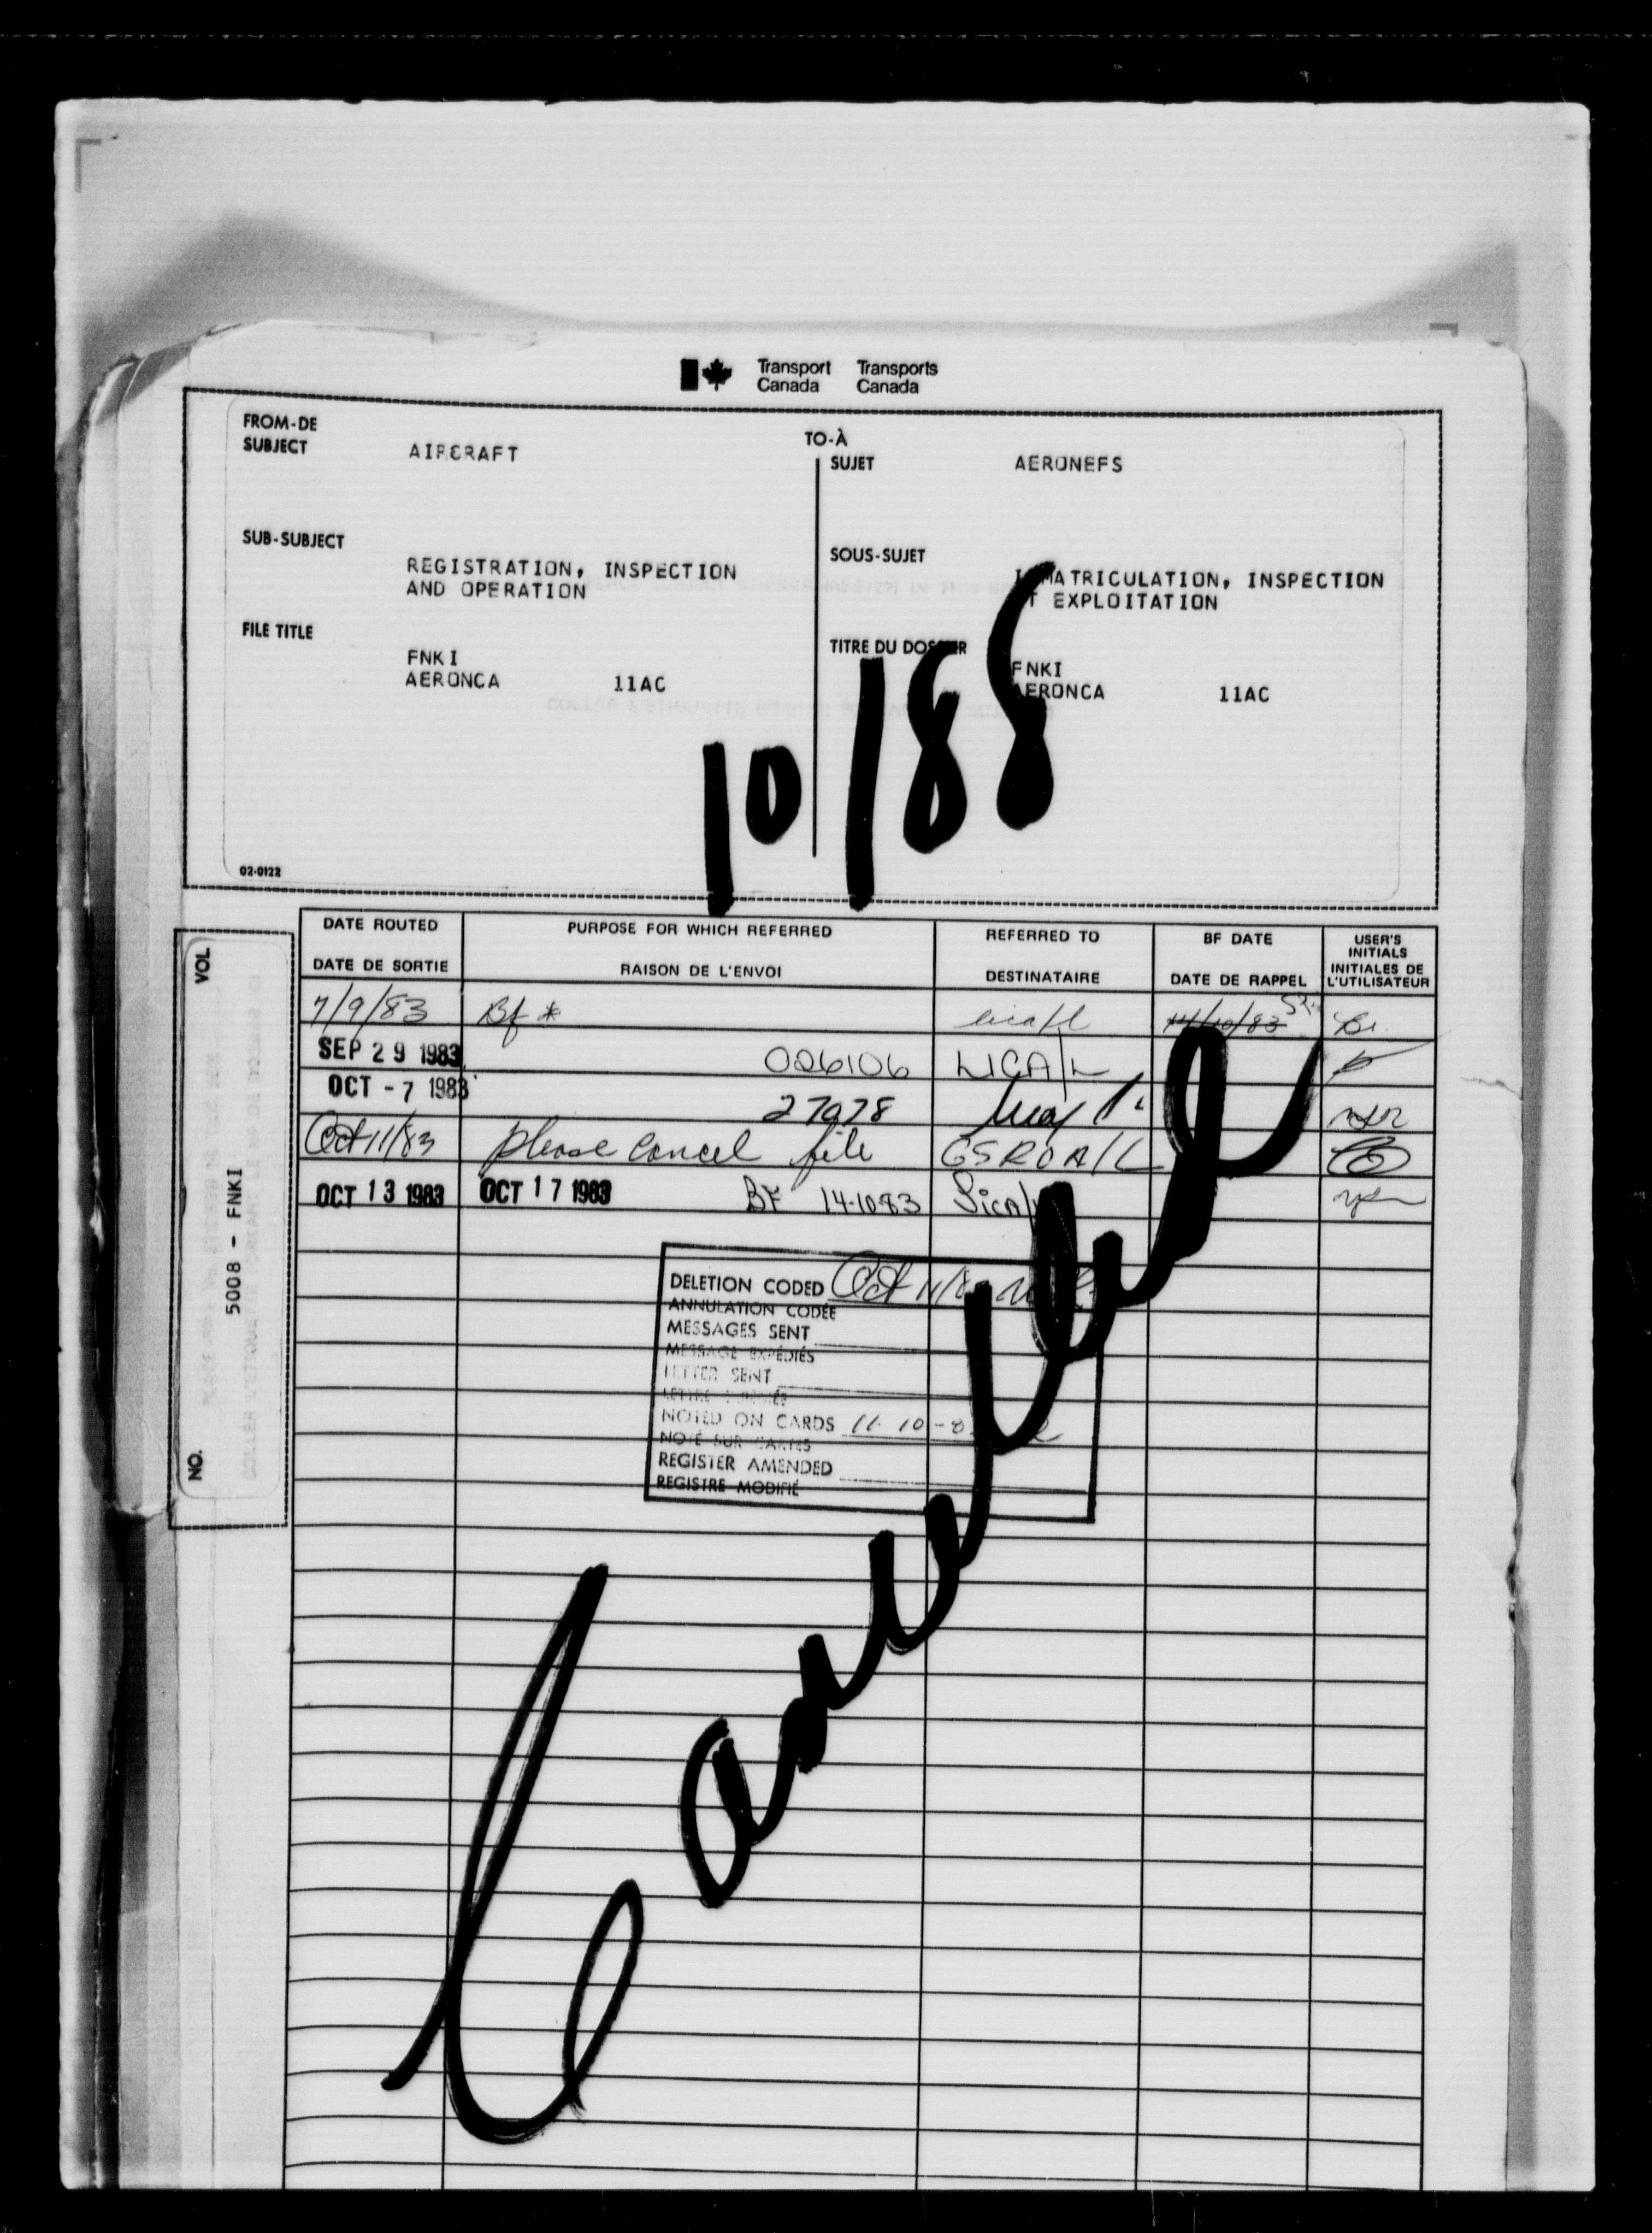 Transport Canada Transports Canada
FROM-DE TO-À
SUBJECT AIRCRAFT
SUJET AERONEFS
SUB-SUBJECT
REGISTRATION, INSPECTION
AND OPERATION
SOUS-SUJET
MATRICULATION, INSPECTION
T EXPLOITATION
FILE TITLE
FNKI
AERONCA 11AC
TITRE DU DOSSIER
FNKI
AERONCA 11AC
10/88
02-0122
VOL.
5008 - FNKI
NO.
DATE ROUTED PURPOSE FOR WHICH REFERRED REFERRED TO BF DATE USER'S INITIALS
DATE DE SORTIE RAISON DE L'ENVOI DESTINATAIRE DATE DE RAPPEL INITIALES DE L'UTILISATEUR
7/9/83 Bf *
SEP 29 1983 026106 LICA/L
OCT - 7 1983 27078
Oct 11/83 please cancel file GSROA/L
OCT 13 1983 OCT 17 1983 BF 14-10-83
DELETION CODED Oct 11/
ANNULATION CODÉE
MESSAGES SENT
MESSAGE EXPÉDIÉS
LETTER SENT
NOTED ON CARDS 11-10-8
NOTÉ SUR CARTES
REGISTER AMENDED
REGISTRE MODIFIÉ
Cancelled